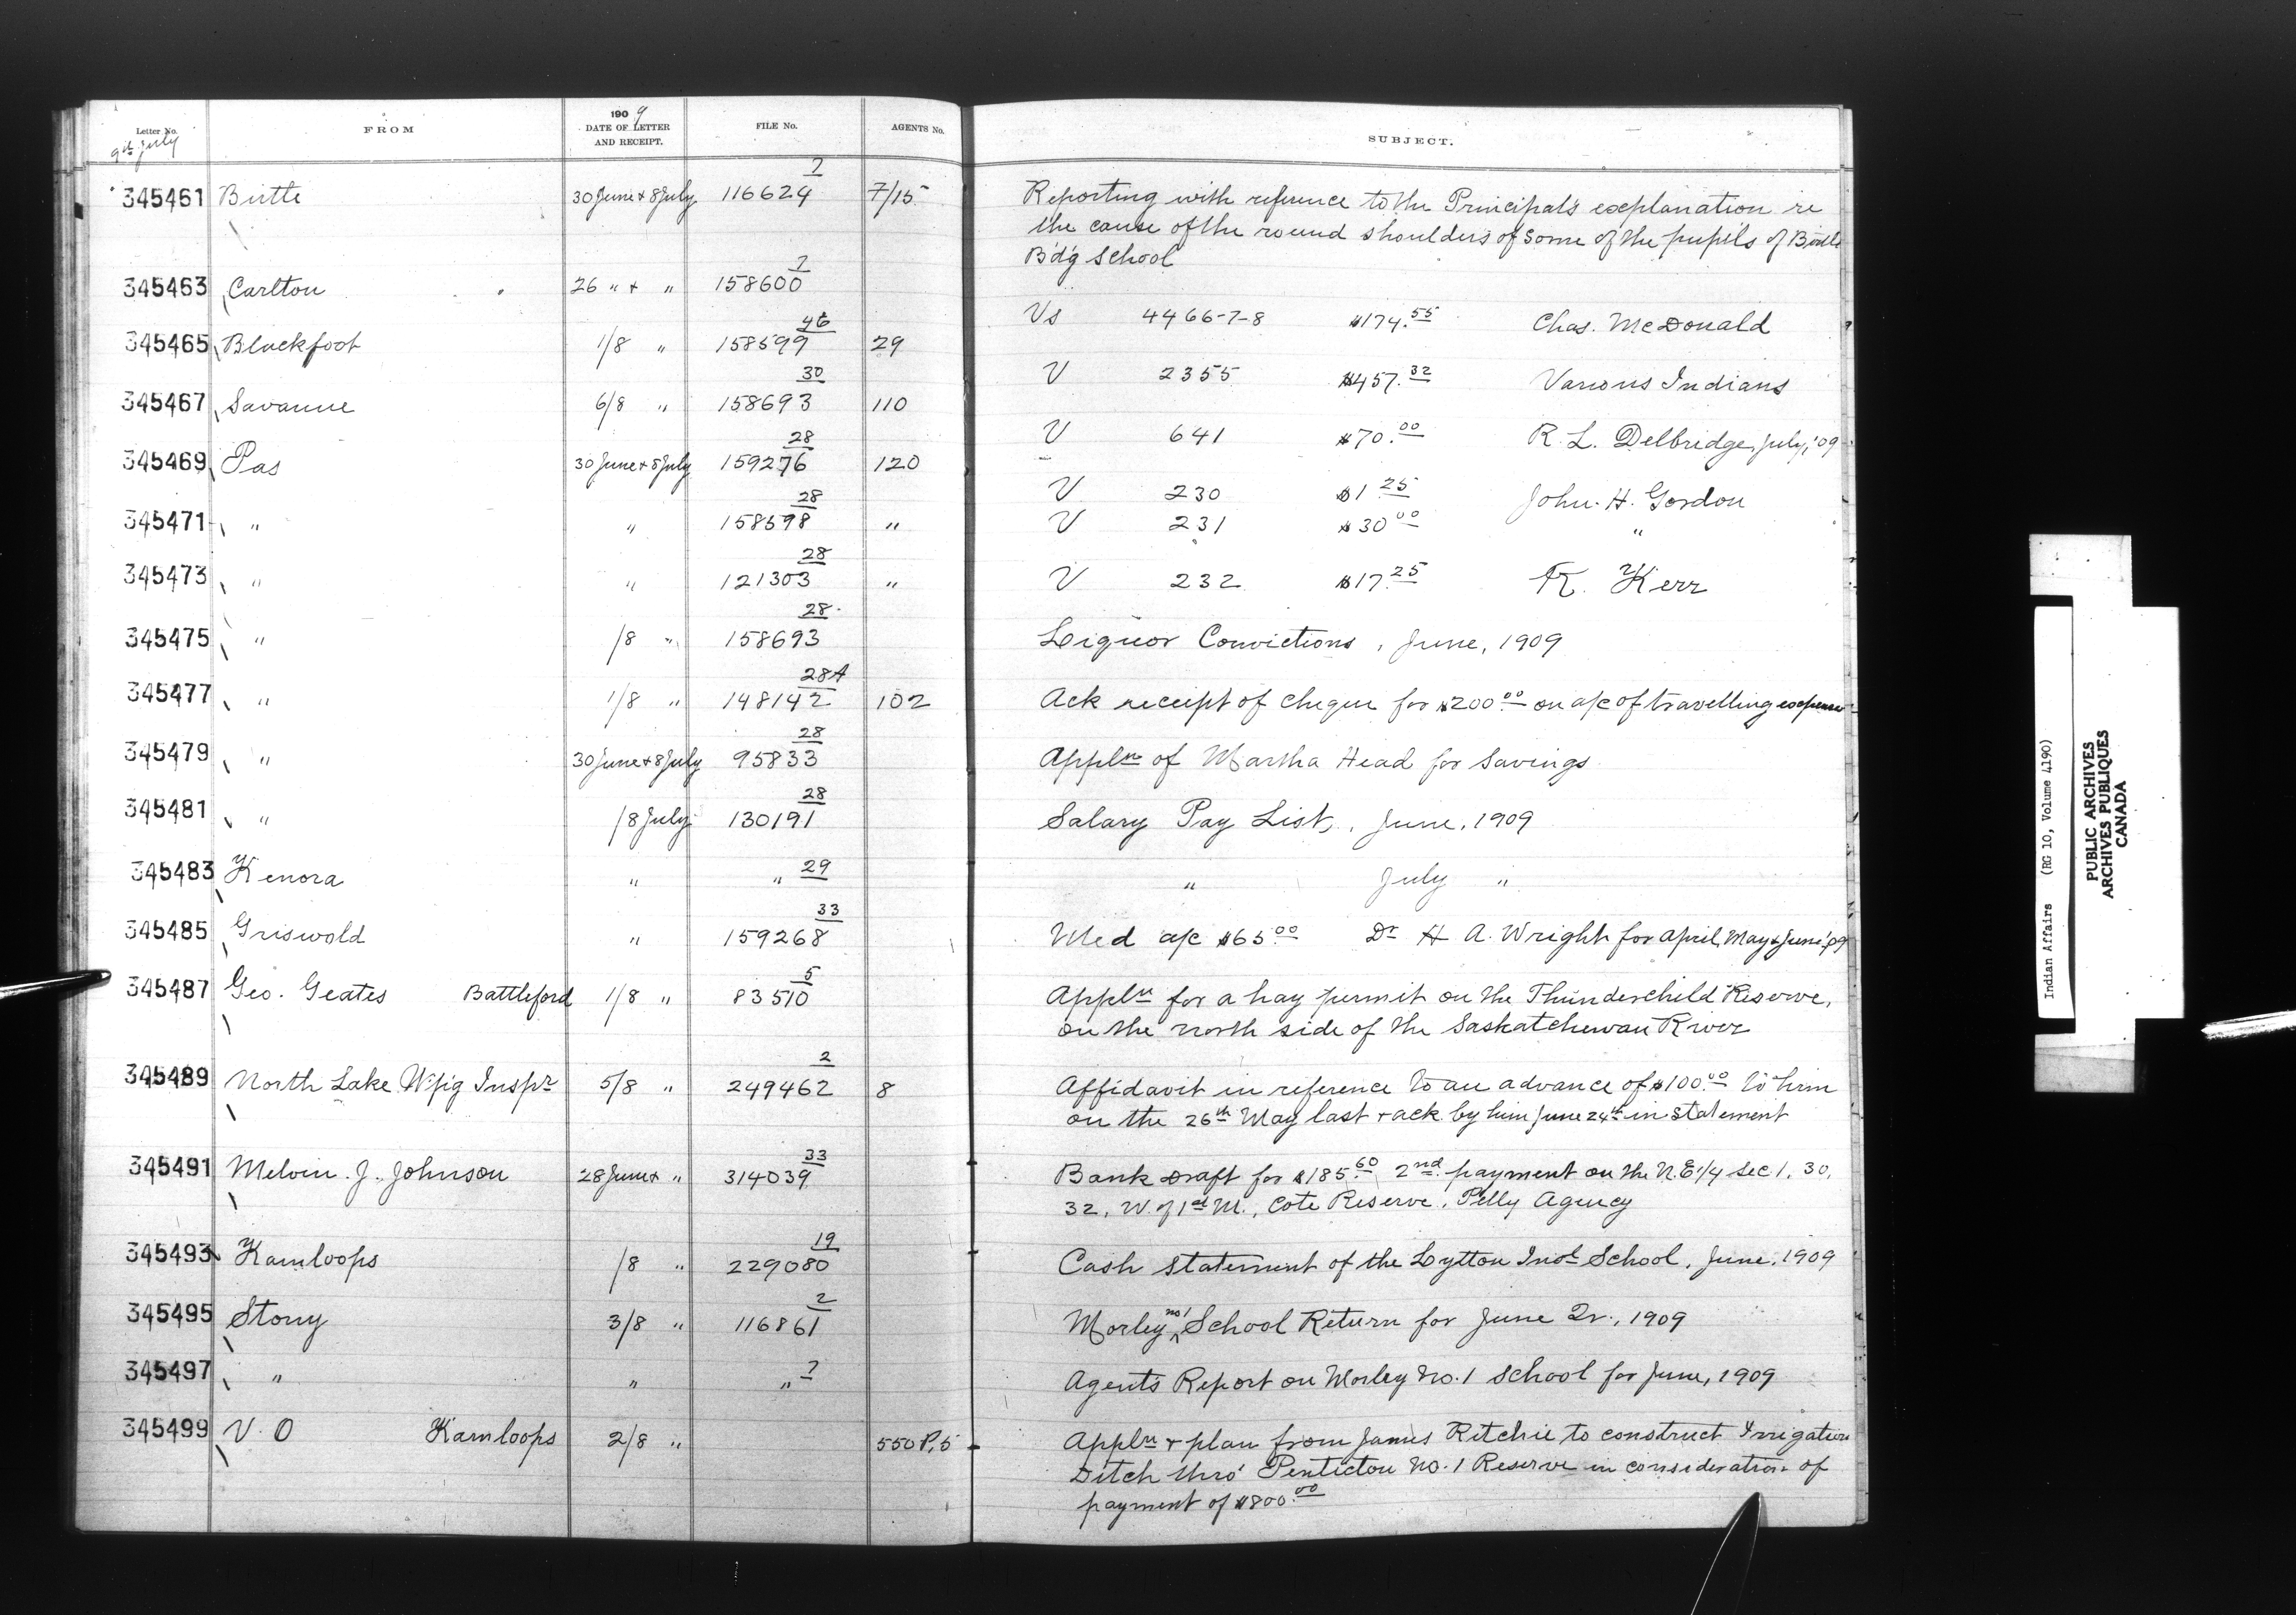 Letter No. FROM 1909 DATE OF LETTER AND RECEIPT. FILE No. AGENTS No. SUBJECT.
9th July
345461 Birtle 30 June & 8 July 116624 7 7/15 Reporting with reference to the Principal's explanation re
the cause of the round shoulders of some of the pupils of Birtle
B'd'g School
345463 Carlton 26 " & " 158600 7 Vs 4466-7-8 $174.55 Chas. McDonald
345465 Blackfoot 1/8 " 158599 46 29 V 2355 $457.32 Various Indians
345467 Savanne 6/8 " 158693 30 110 V 641 $70.00 R. L. Delbridge, July, '09
345469 Pas 30 June & 8 July 159276 28 120 V 230 $1 25 John. H. Gordon
345471 " " 158598 28 " V 231 $30 00 "
345473 " " 121303 28 " V 232 $17.25 R. Kerr
345475 " /8 " 158693 28 Liquor Convictions, June, 1909
345477 " 1/8 " 148142 28A 102 Ack receipt of cheque for $200.00 on a/c of travelling expenses
345479 " 30 June & 8 July 95833 28 Appln of Martha Head for savings
345481 " /8 July 130191 28 Salary Pay List, June, 1909
345483 Kenora " " 29 " July "
345485 Griswold " 159268 33 Med a/c $65.00 Dr H A. Wright for April, May & June '09
345487 Geo. Geates Battleford 1/8 " 83510 5 Appln for a hay permit on the Thunderchild Reserve,
on the north side of the Saskatchewan River
345489 North Lake W'p'g Inspr 5/8 " 249462 2 8 Affidavit in reference to an advance of $100.00 to him
on the 26th May last & ack by him June 24th in statement
345491 Melvin. J. Johnson 28 June & " 314039 33 Bank Draft for $185.60 2nd payment on the N.E. 1/4 sec 1, 30,
32, W. of 1st M., Cote Reserve, Pelly Agency
345493 Kamloops /8 " 229080 19 Cash statement of the Lytton Indl School, June, 1909
345495 Stony 3/8 " 116861 2 Morley no 1 School Return for June Qr., 1909
345497 " " " 7 Agent's Report on Morley No. 1 school for June, 1909
345499 V. O Kamloops 2/8 " 550 P, 5 Appln & plan from James Ritchie to construct Irrigation
Ditch thro' Penticton No. 1 Reserve in consideration of
payment of $800.00
Indian Affairs (RG 10, Volume 4190)
PUBLIC ARCHIVES
ARCHIVES PUBLIQUES
CANADA